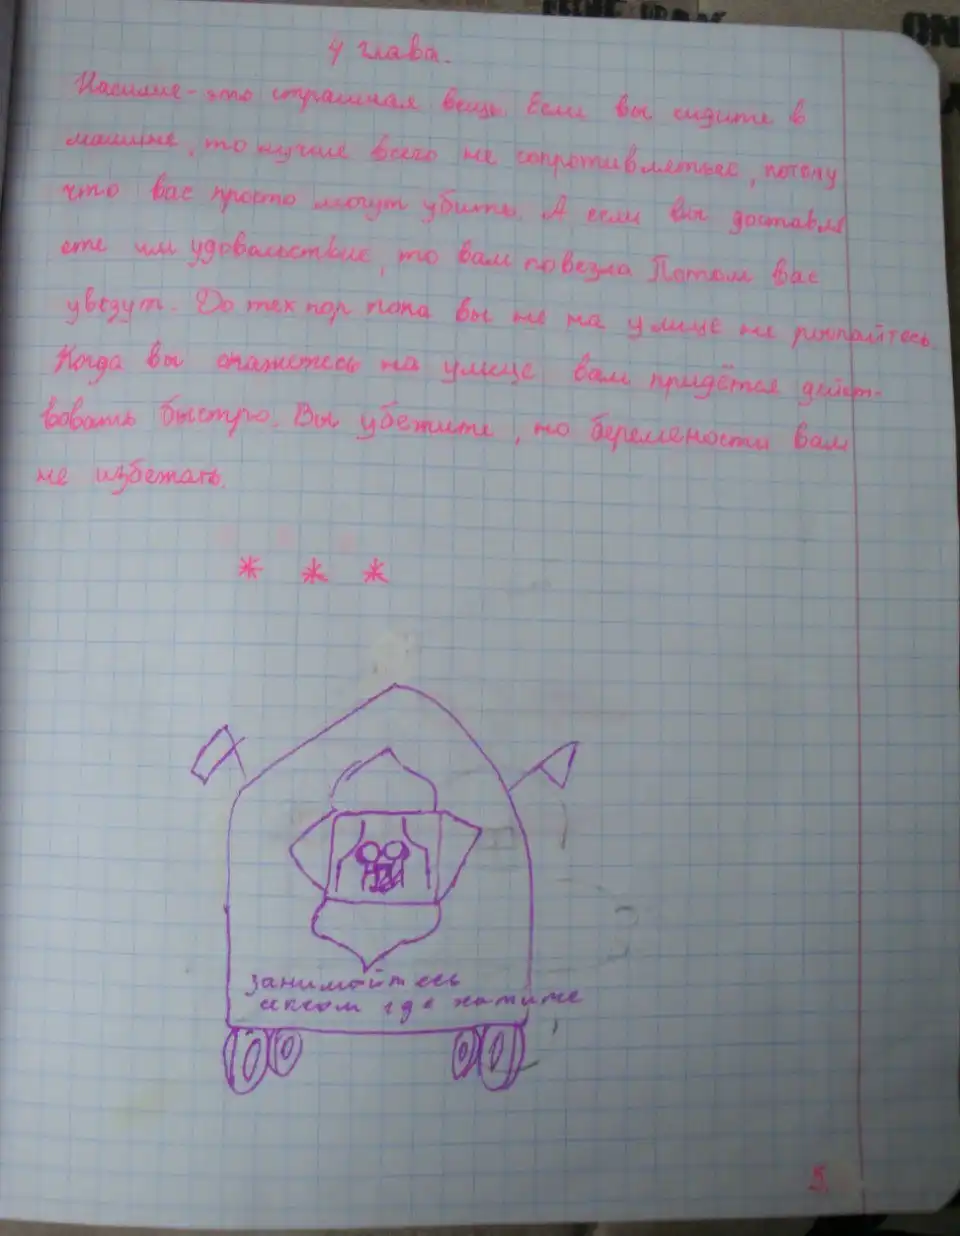 4 глава.
Насилие - это страшная вещь. Если вы сидите в
машине, то лучше всего не сопротивляться, потому
что вас просто могут убить. А если вы доставл
ете им удовальствие, то вам повезла Потом вас
увезут. До тех пор пока вы не на улице не рыпайтесь.
Когда вы окажетесь на улице вам придётся дейст-
вовать быстро. Вы убежите, но беремености вам
не избежать.
* * *
занимайтесь
где хотите
5.